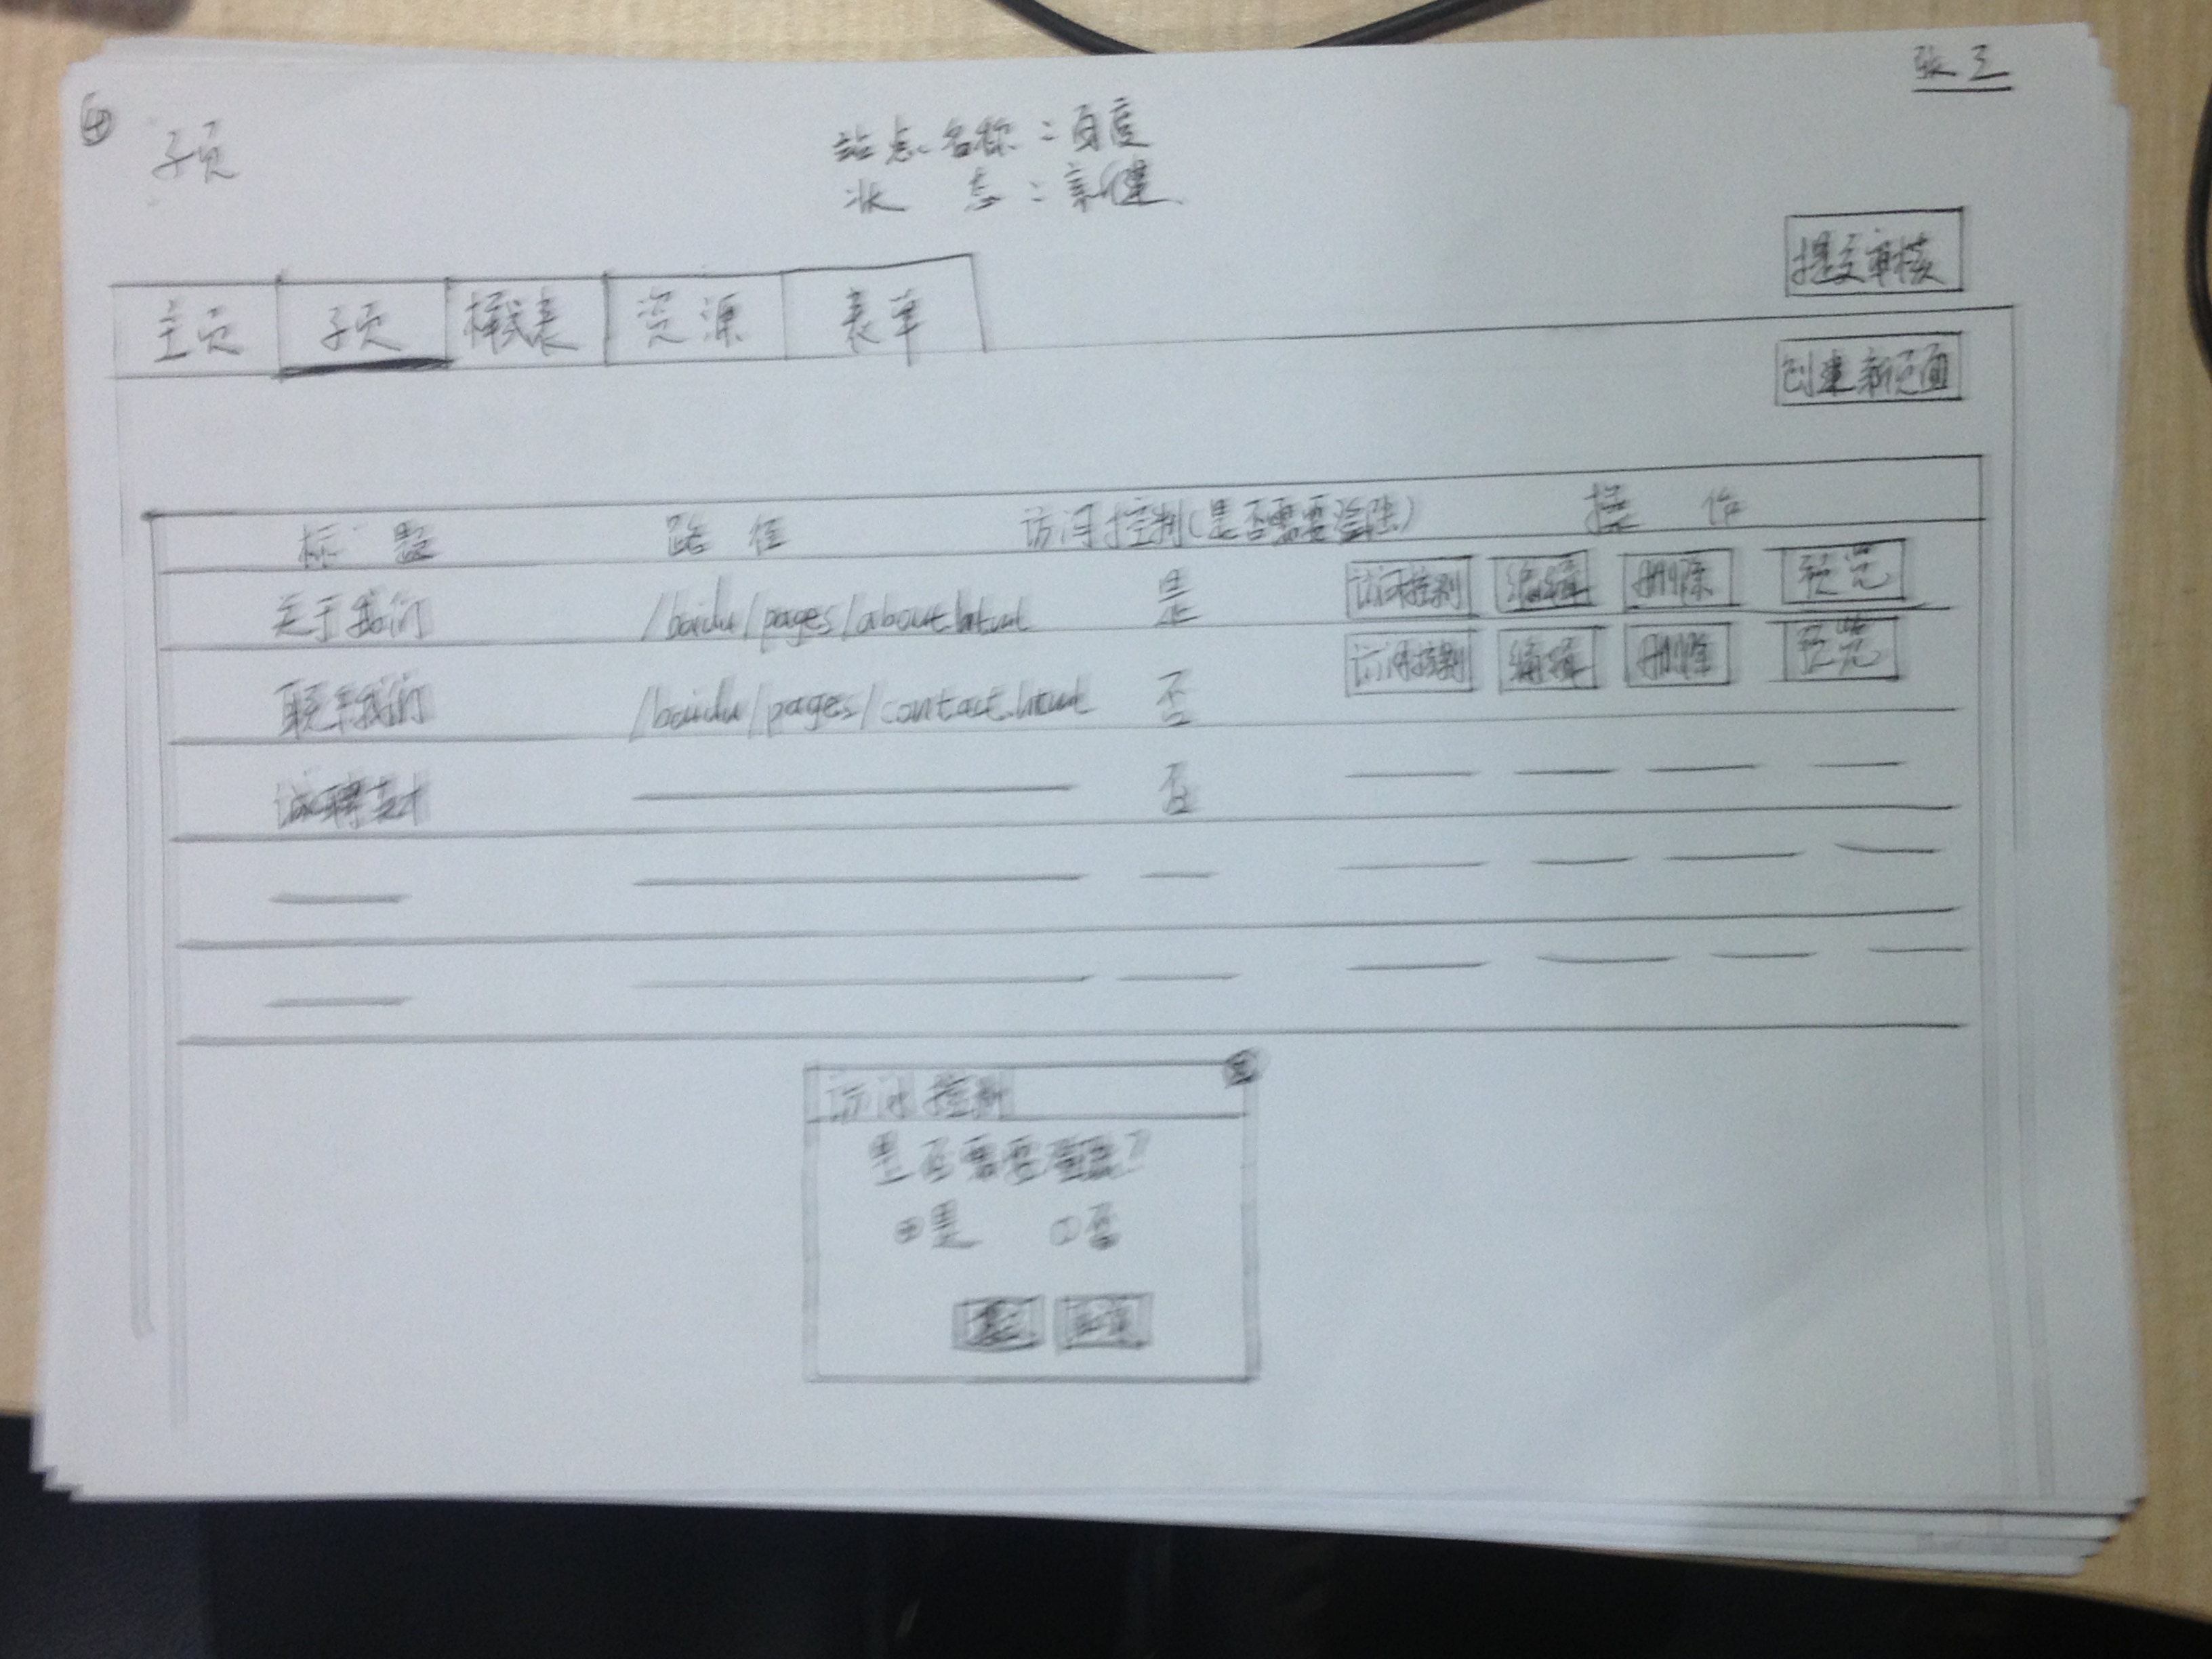 张三
④
子页
站点名称：百度
状 态：新建
提交审核
主页 子页 模式表 资源 表单
创建新页面
标题 路径 访问控制(是否需要登陆) 操 作
关于我们 /baidu/pages/about.html 是 访问控制 编辑 删除 预览
联系我们 /baidu/pages/contact.html 否 访问控制 编辑 删除 预览
诚聘英才 否
访问控制
是否需要登陆?
是 否